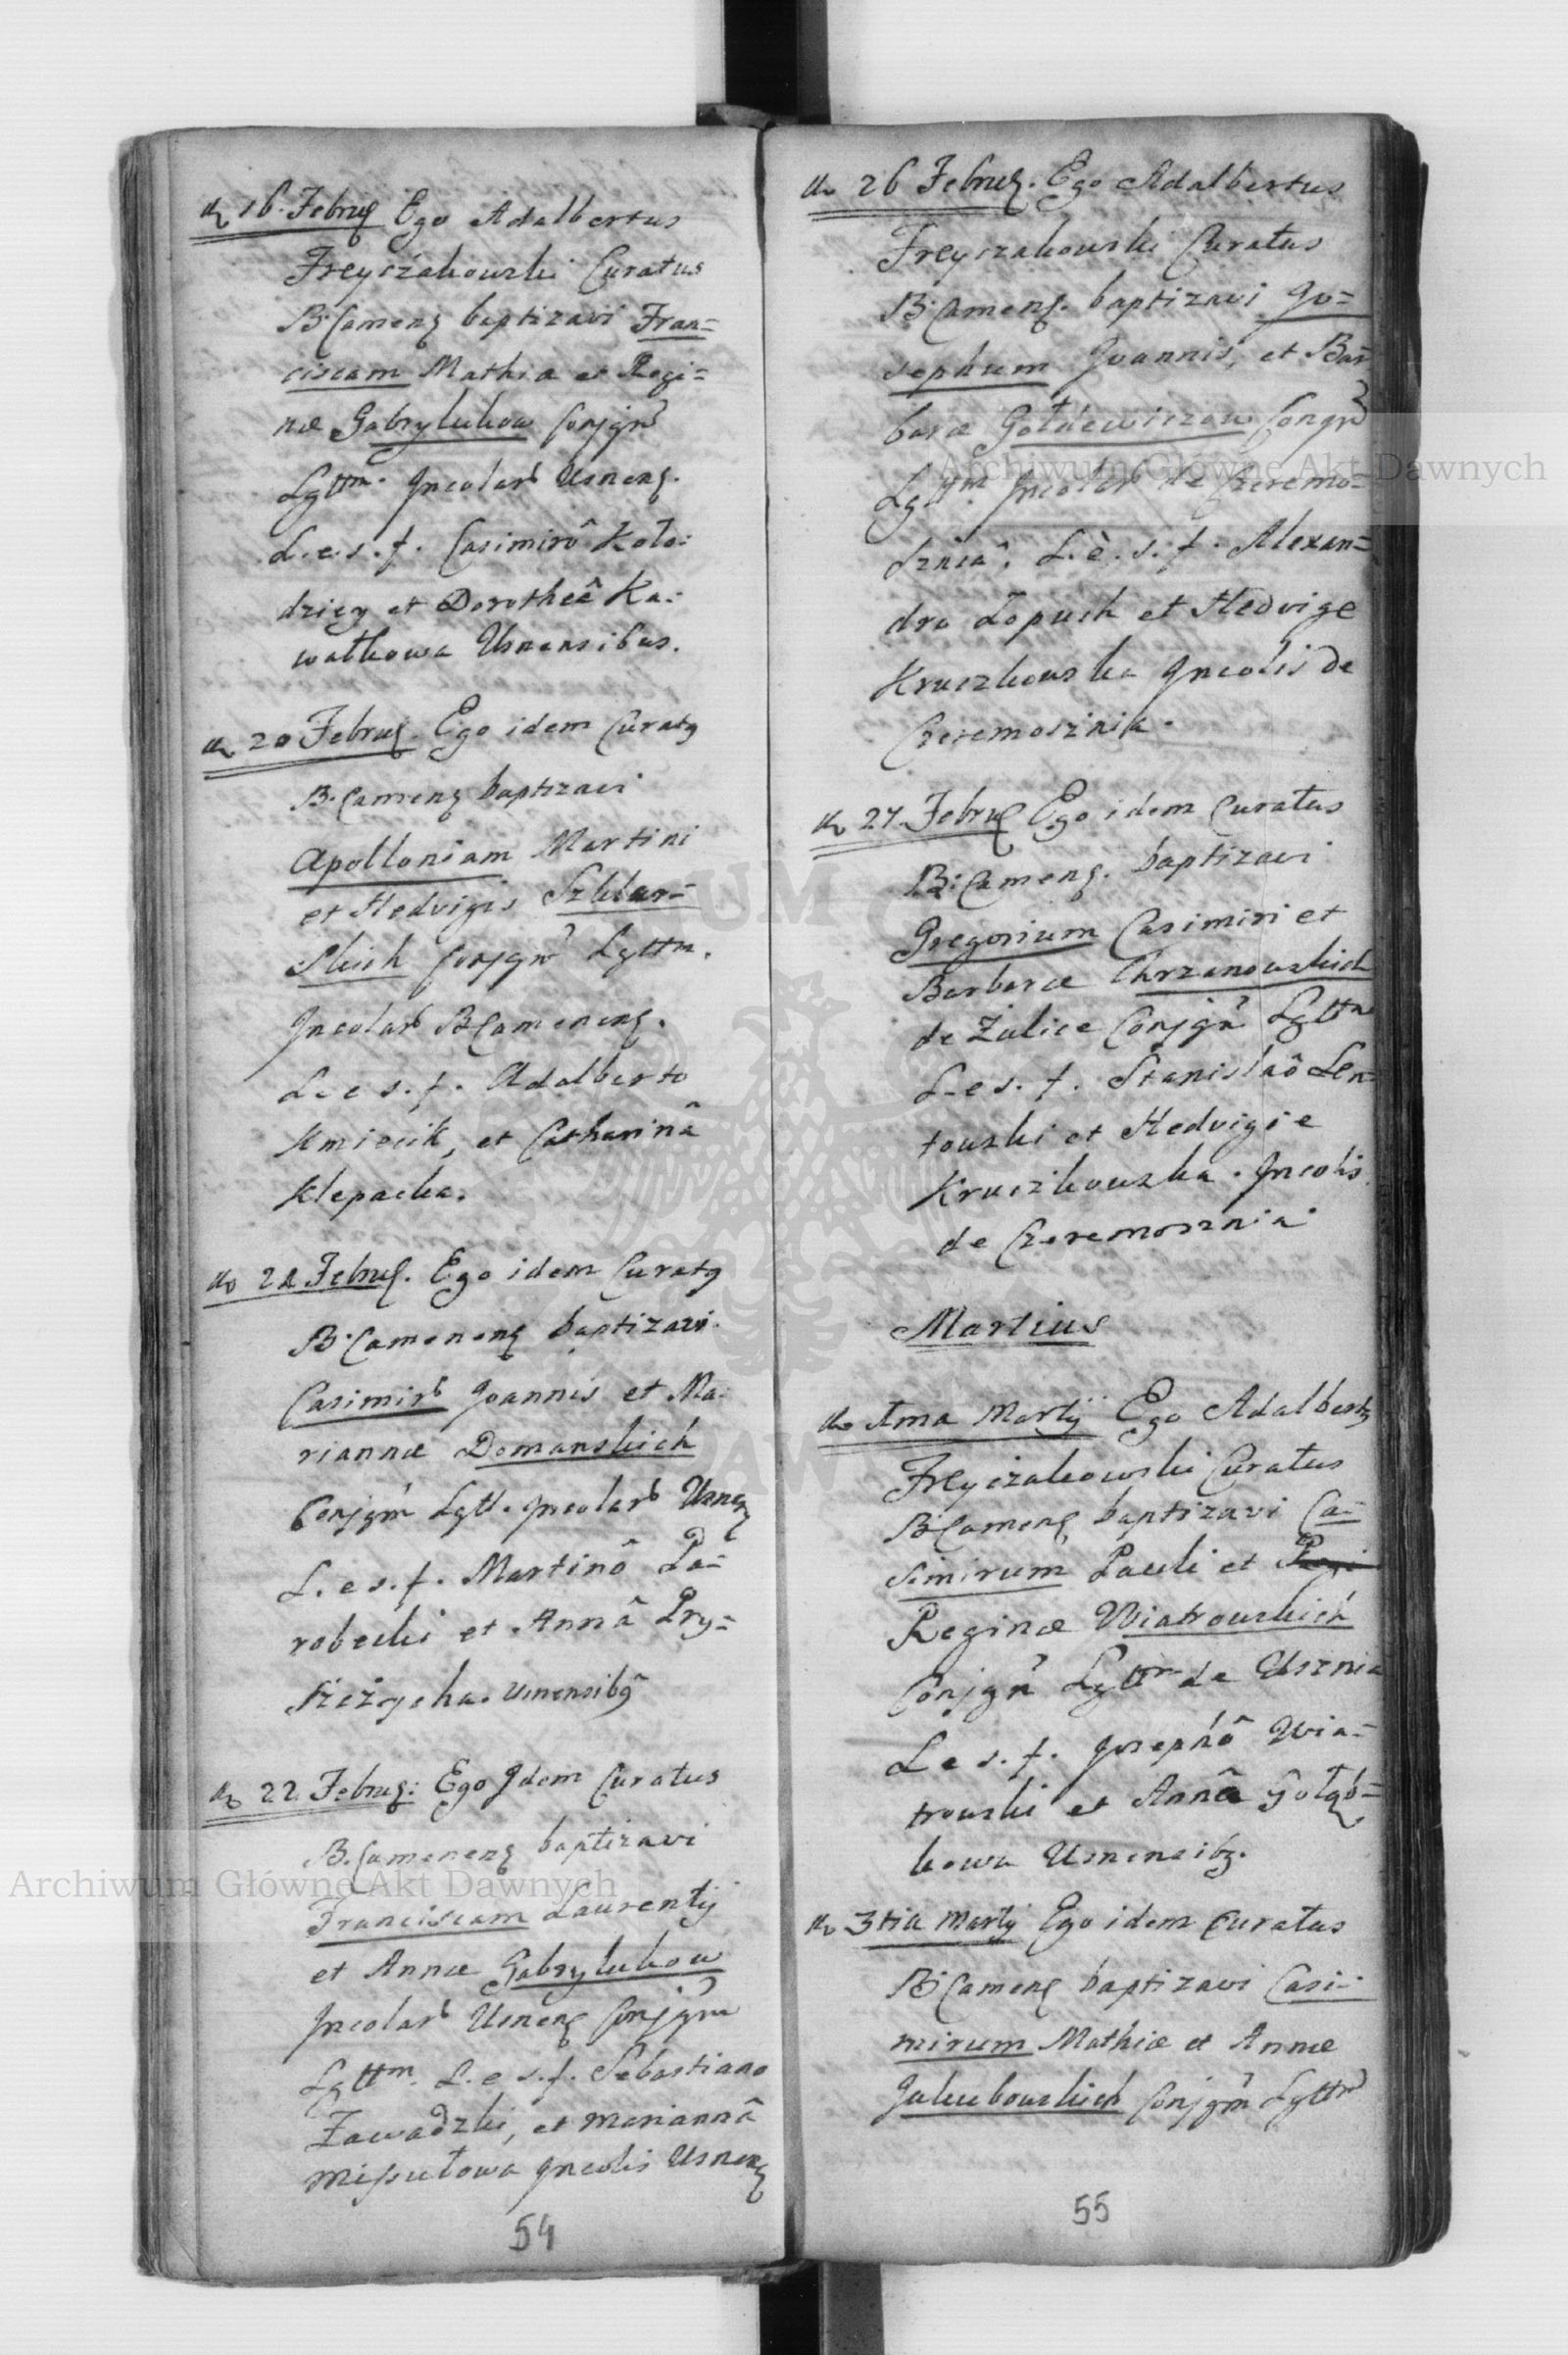 16. Febru Ego Adalbertus
Freyczakowski Curatus
B. Camens baptizavi Fran=
ciscam Mathia et Regi=
næ Gabrylukow Conjgū
Lgttm. Incolarb Usnens.
L. e. s. f. Casimirô Koło-
dziey et Dorotheê Ka-
wałkowa Usnensibus.
20 Febru. Ego idem Curatg
B. Camens baptizavi
Apolloniam Martini
et Hedvigis Szklar=
skich Conjgū Lgttm.
Incolarb BCamenens.
L. e s. f. Adalberto
Kmiecik, et Catharinâ
Klepacka.
Febru. Ego idem Curatg
B. Camenens baptizavi.
Casimirb Joannis et Ma-
riannæ Domanskich
Conjgm Lgtt. Incolarb Usnen
L. e s. f. Martinô Pa=
robecki et Annâ Pry=
szczycha. Usnensibg
22 Febru: Ego Idem Curatus
B. Camenens baptizavi
Franciscam Laurentij
et Annæ Gabrylukow
Incolarb Usnens Conjgm
Lgttm. L. e s. f. Sebastiano
Zawadzki, et Mariannâ
Incolis Usnens
54
26 Febru. Ego Adalbertus
Freyczakowski Curatus
B. Camens. baptizavi Jo=
sephum Joannis, et Bar
baræ Gołdewiczow Congū
Lgttm Incolarb de Czeremo=
sznia. L. è. s. f. Alexan=
dro Łopuch et Hedvige
Kruczkowska Incolis de
Czeremosznia.
27. Febru Ego idem Curatus
B: Camens. baptizavi
Gregorium Casimiri et
Barbaræ Chrzanowskich
de Zulice Conjgū Lgttm
L. e s. f. Stanislaô Len=
towski et Hedvigie
Kruczkowska. Incolis
de Czeremosznia
Martius
1ma Martij Ego Adalbertg
Freyczakowski Curatus
B. Camens baptizavi Ca=
simirum Pauli et Regi
Reginæ Wiatrowskich
Conjgū Lgttm de Usznia
L e s. f. Josephô Wia=
trowski et Annâ Gołąb=
kowa Usnensibg.
3tia Martij Ego idem Curatus
B. Camens baptizavi Casi-
mirum Mathiæ et Annæ
Jakubowskich Conjgm Lgttm
55
Archiwum Główne Akt Dawnych
Archiwum Główne Akt Dawnych